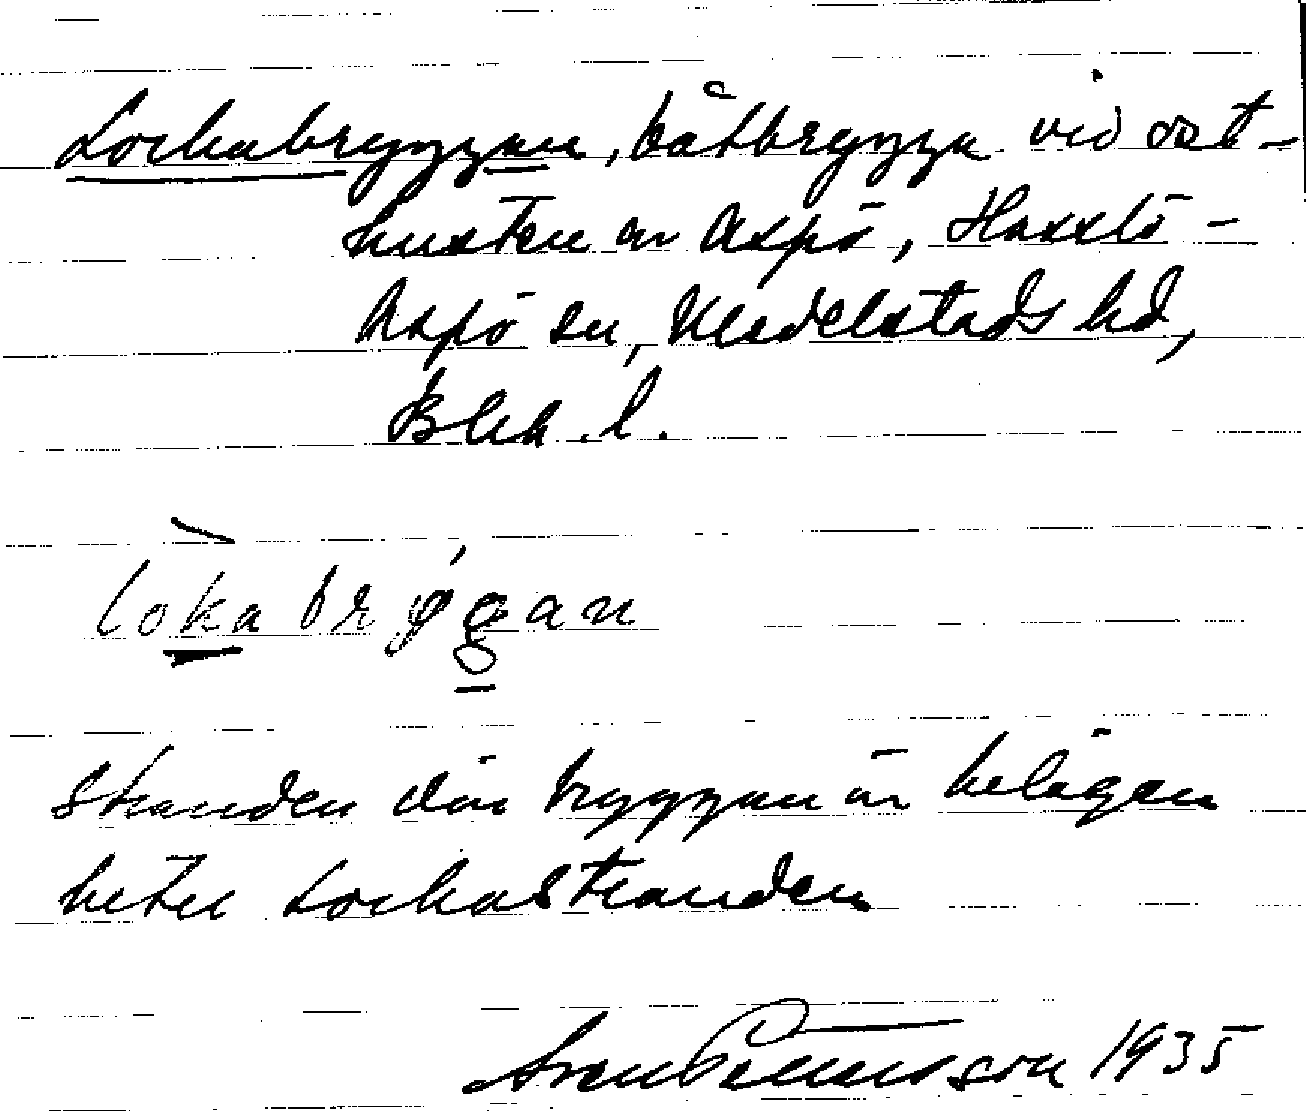 Lockabryggan, båtbrygga vid ost-
kusten av Aspö, Hasslö-
Aspö sn, Medelstads hd,
Blek. l.
lòkabrýgan
Stranden där bryggan är belägen
heter Lockastranden
1935